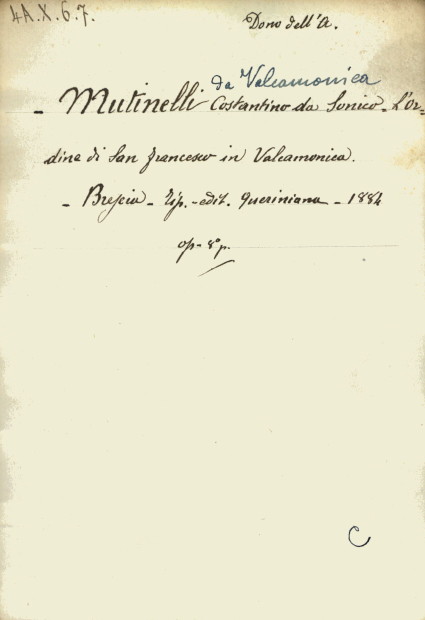 4A.X.6.7.
Dono dell'A.
da Valcamonica
- Mutinelli Costantino da Sonico - L'Or=
dine di San Francesco in Valcamonica.
- Brescia - Tip. - edit. Queriniana - 1884
op - 8° p.
C